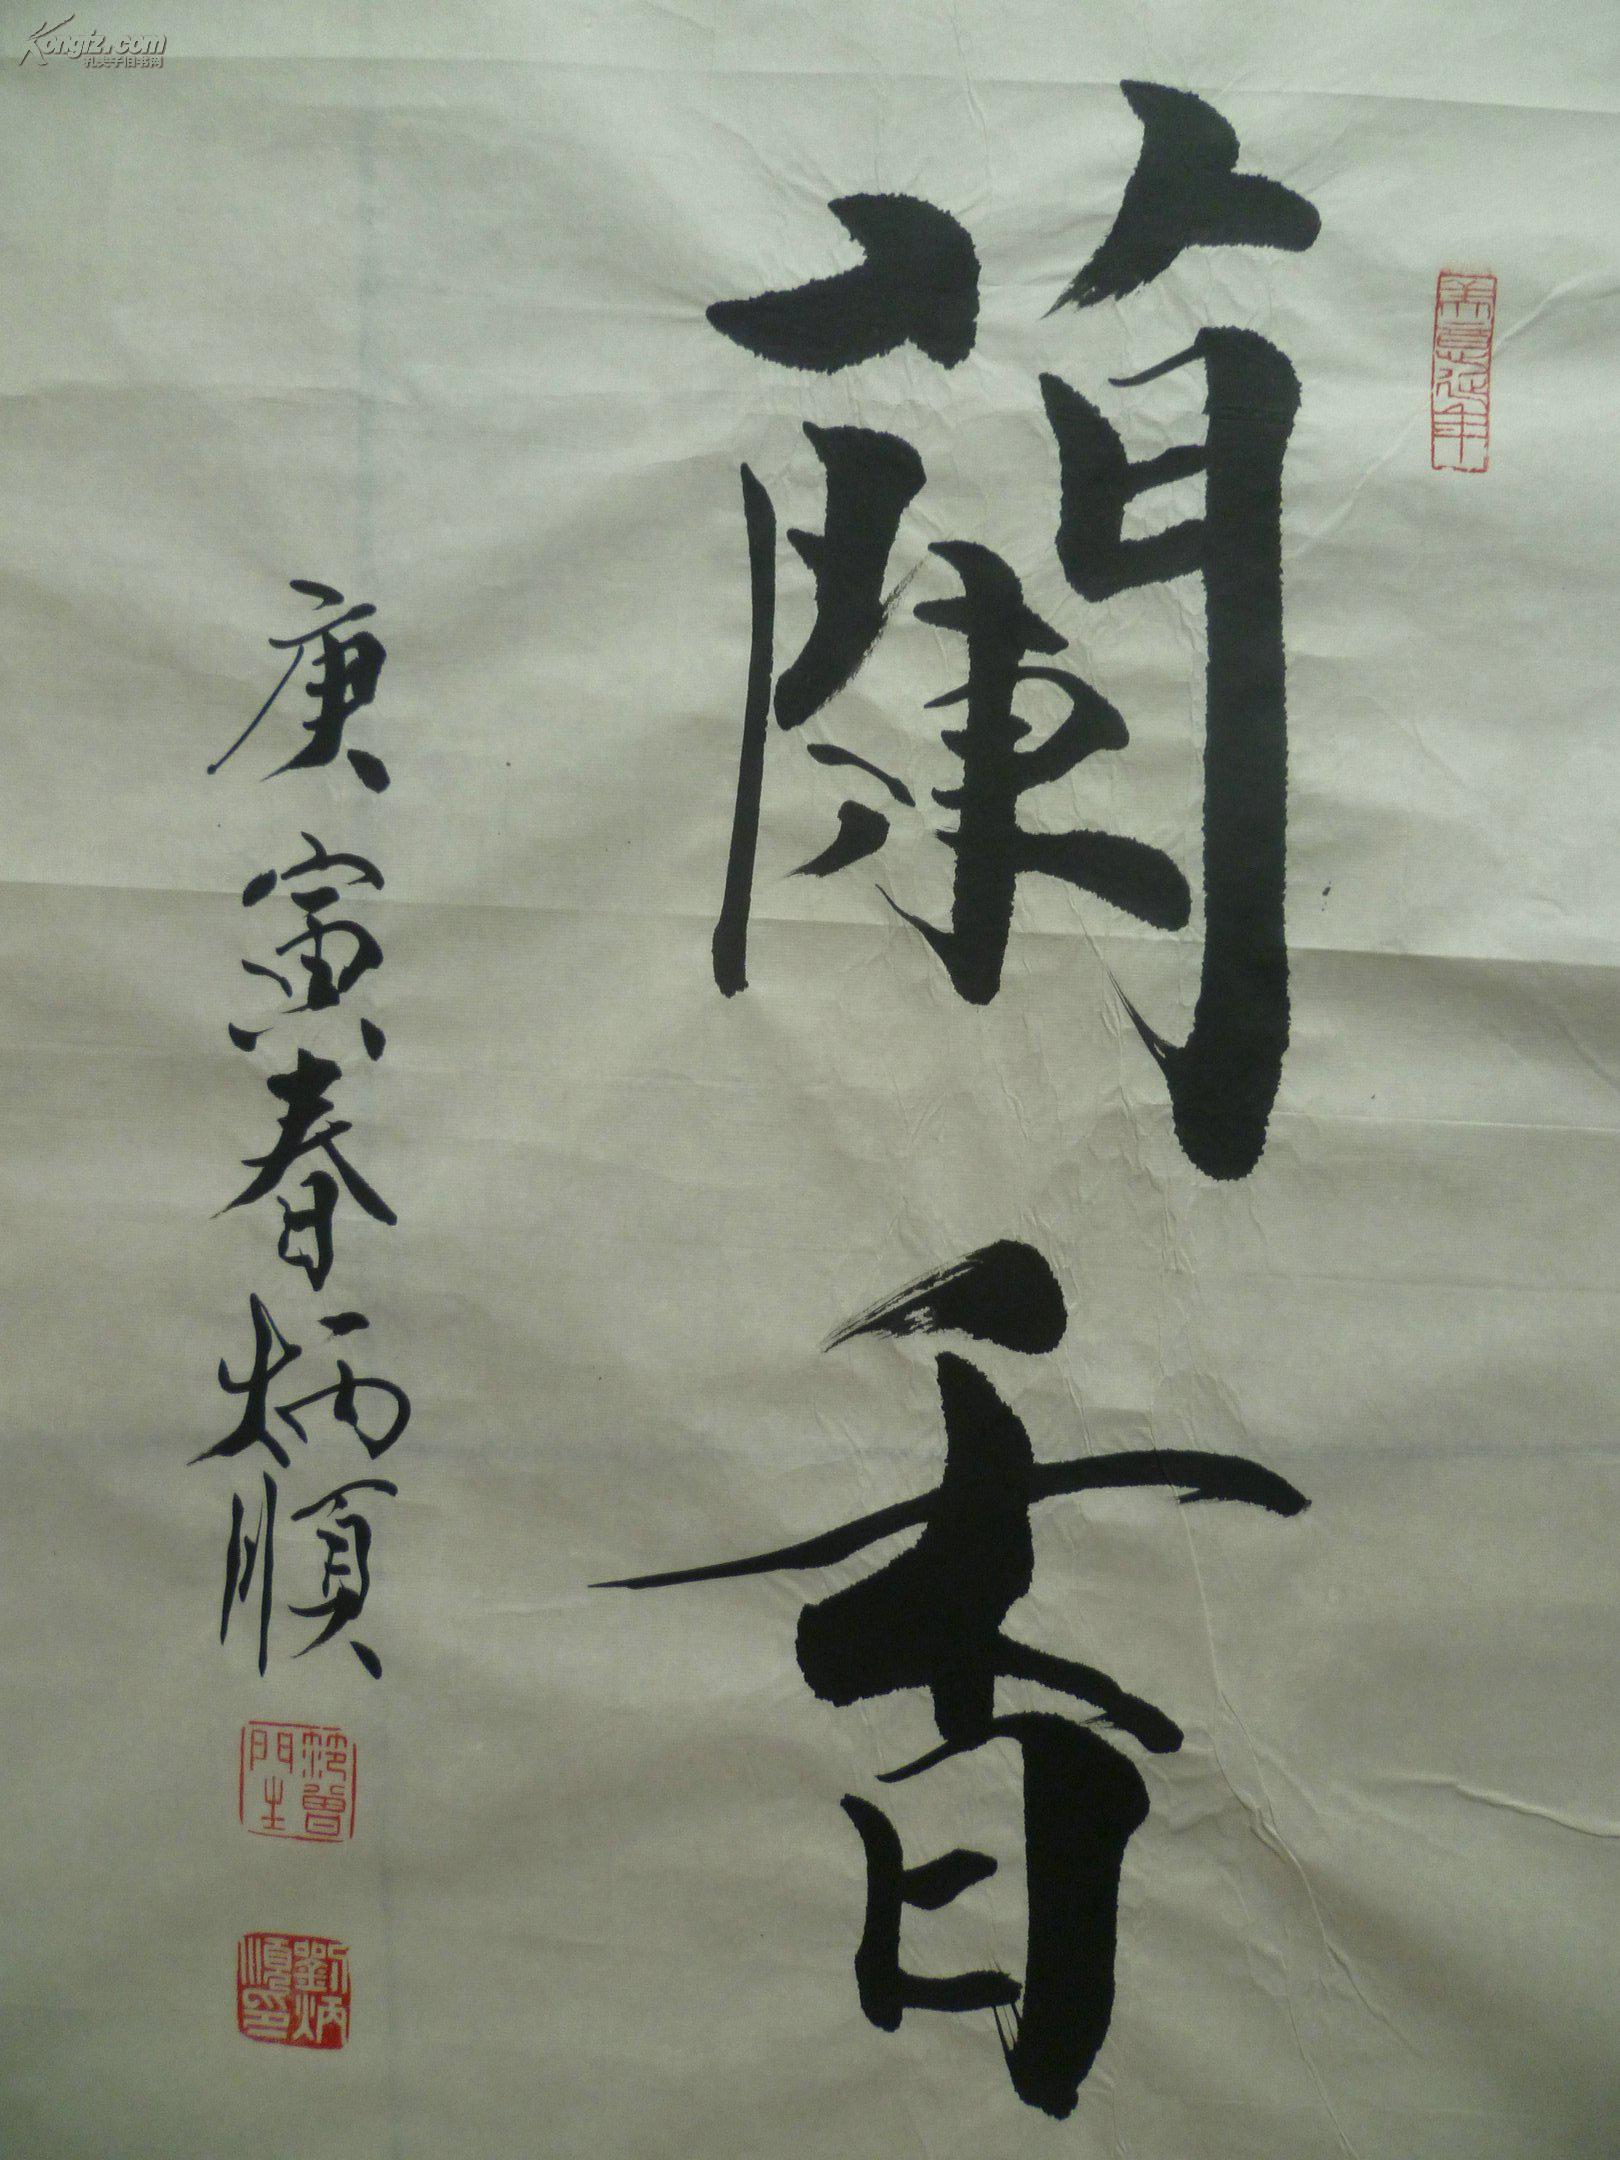 蘭香
庚寅春炳順
劉炳順印
Kongfz.com
孔夫子旧书网